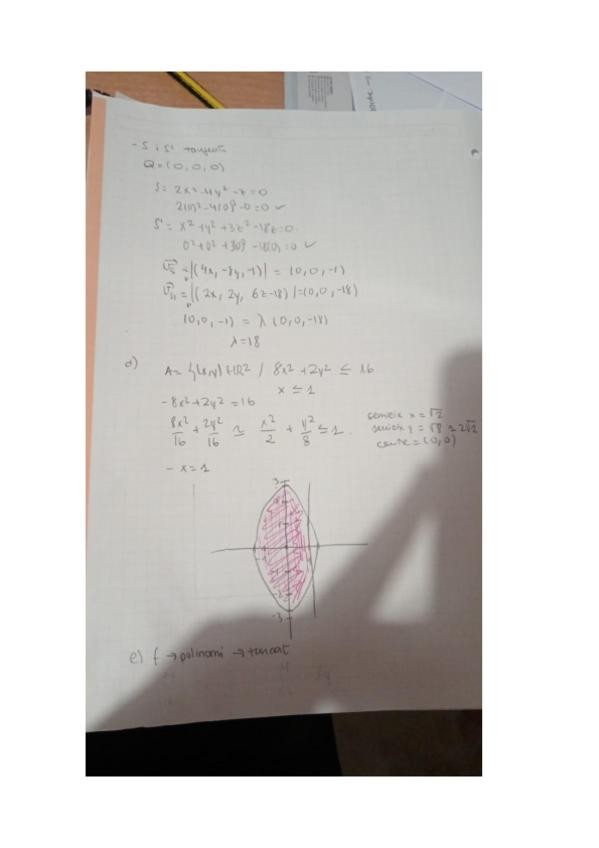 - S i S' tangents
Q=(0,0,0)
S= 2x²-4y²-z=0
2(0)²-4(0)²-0=0 ✓
S'= x²+y²+3z²-18z=0
0²+0²+3(0)²-18(0)=0 ✓
= |(4x,-8y,-1)| = (0,0,-1)
= |(2x, 2y, 6z-18)|=(0,0,-18)
(0,0,-1) = λ (0,0,-18)
λ=18
d)
A= {(x,y) ∈ R² / 8x²+2y² ≤ 16
x ≤ 1
- 8x²+2y²=16
8x²/16 + 2y²/16 ≃ x²/2 + y²/8 ≤ 1.
semieix x = √2
semieix y = √8 ≃ 2√2
centre = (0,0)
- x=1
3
-1
-2
-3
e) f → polinomi → tancat